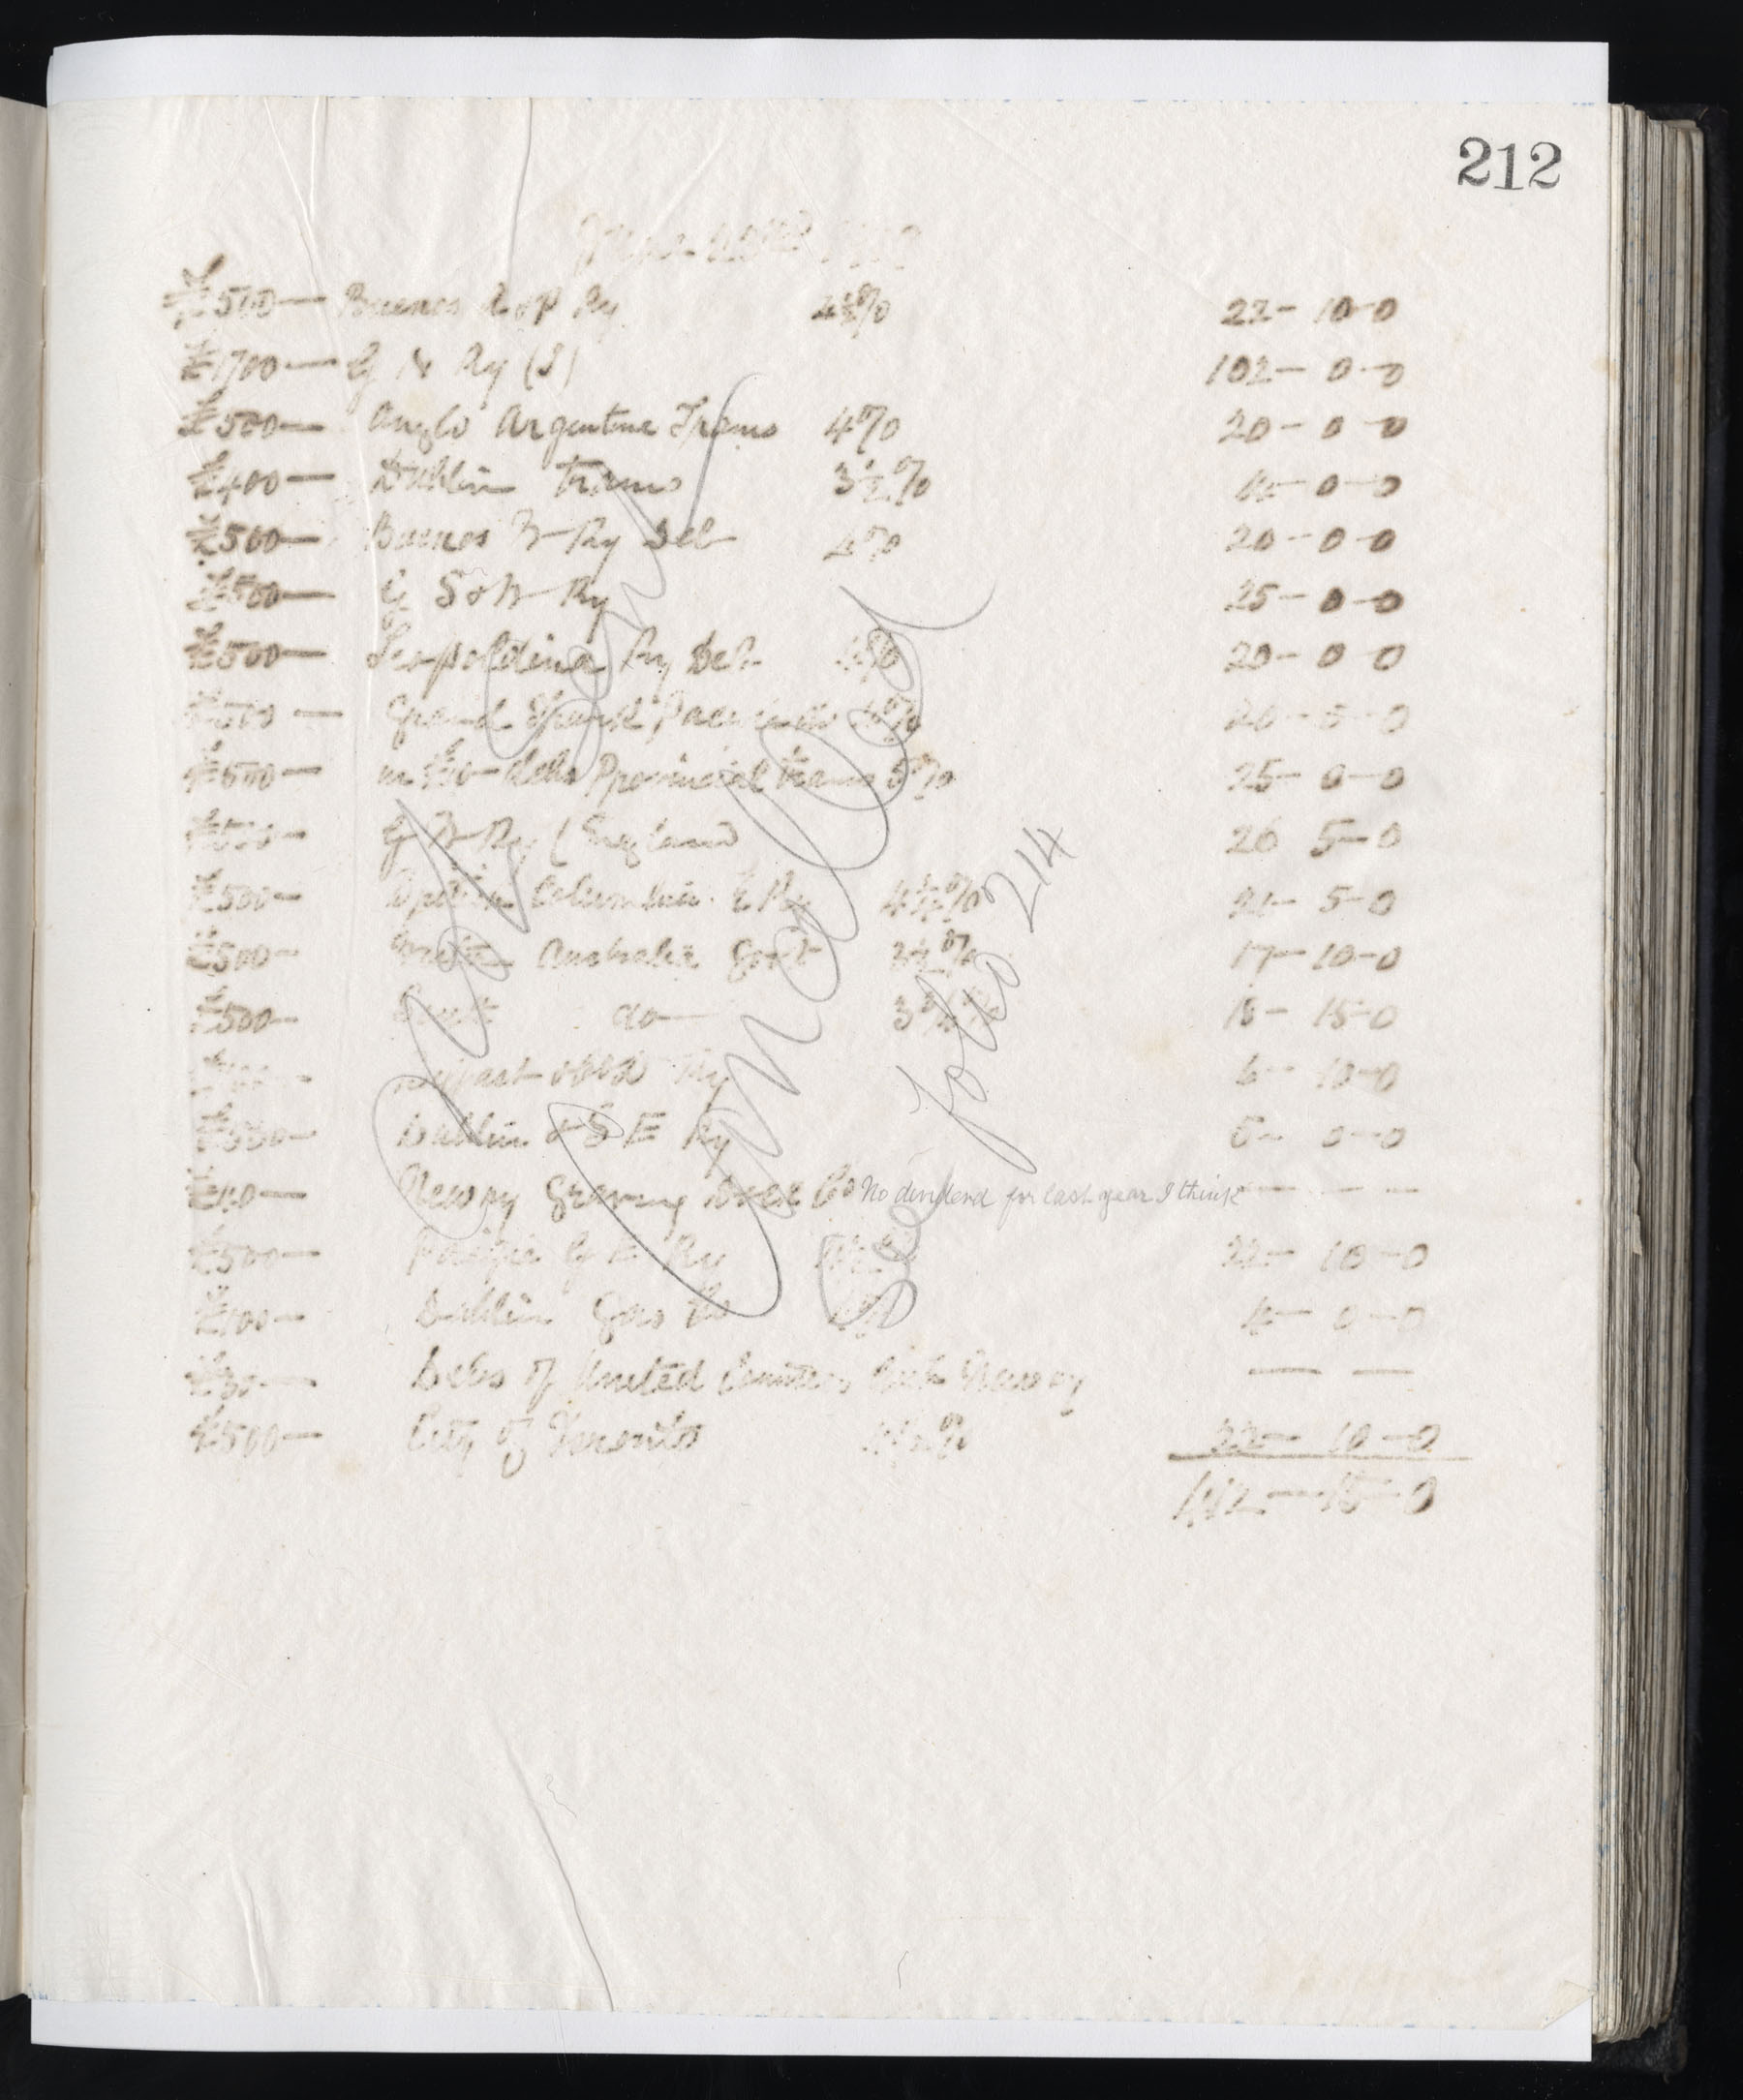 212
June
£500— Buenos A & P Ry 4½% 22-10-0
£1700— G N Ry (I) 102-0-0
£500— Anglo Argentine Trams 4% 20-0-0
£400— Dublin Trams 3½% 0-0
£500— Buenos W Ry Deb 4% 20-0-0
£500— G S & W Ry 25-0-0
£500— Leopoldina Ry Deb 4% 20-0-0
£500— Grand Trunk Pacific 4% 20-0-0
£500— in £10— debs Provincial Trams 5% 25-0-0
£500— G W Ry (England 26 5-0
£500— British Columbia E Ry 4¼% 21-5-0
£500— Australia Govt 3½% 17-10-0
£500— South do— 3¾% 18-15-0
£100— Belfast & Co D Ry 6-10-0
£500— Dublin & S E Ry 5-0-0
£10— Newry Graving Dock Co No dividend for last year I think — — —
£500— Pacific G E Ry 4½% 22-10-0
£100— Dublin Gas Co 4% 4-0-0
£30— Debs of United Counties Newry — —
£500— City of Toronto 4½% 22-10-0
412-15-0
Not sent
Cancelled
See folio 214